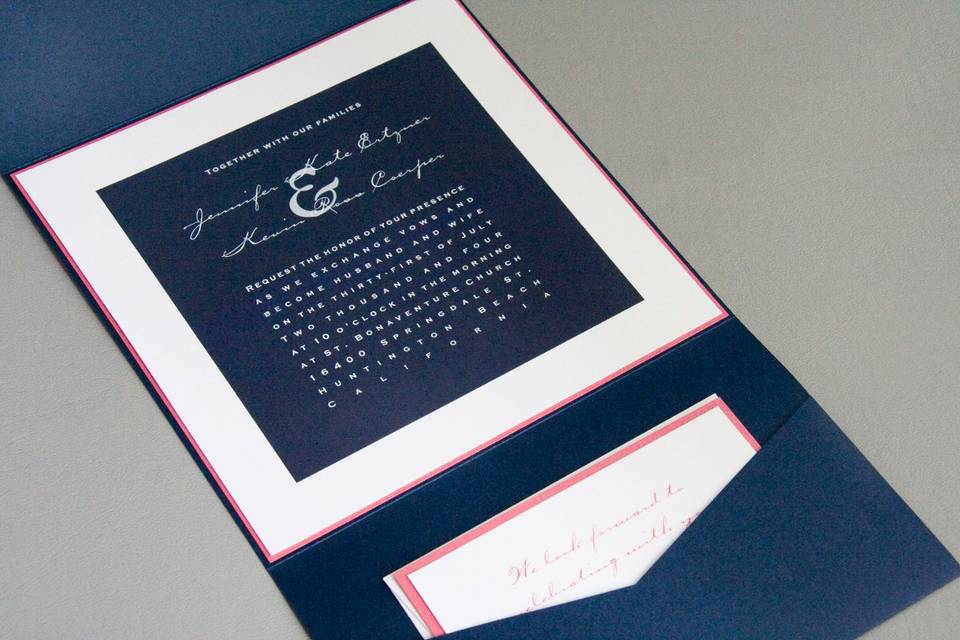 TOGETHER WITH OUR FAMILIES
Jennifer Kate Ertzner
&
Kevin Ross Coerper
REQUEST THE HONOR OF YOUR PRESENCE
AS WE EXCHANGE VOWS AND
BECOME HUSBAND AND WIFE
ON THE THIRTY-FIRST OF JULY
TWO THOUSAND AND FOUR
AT 10 O'CLOCK IN THE MORNING
AT ST. BONAVENTURE CHURCH
16400 SPRINGDALE ST.
HUNTINGTON BEACH
CALIFORNIA
We look forward to
celebrating with